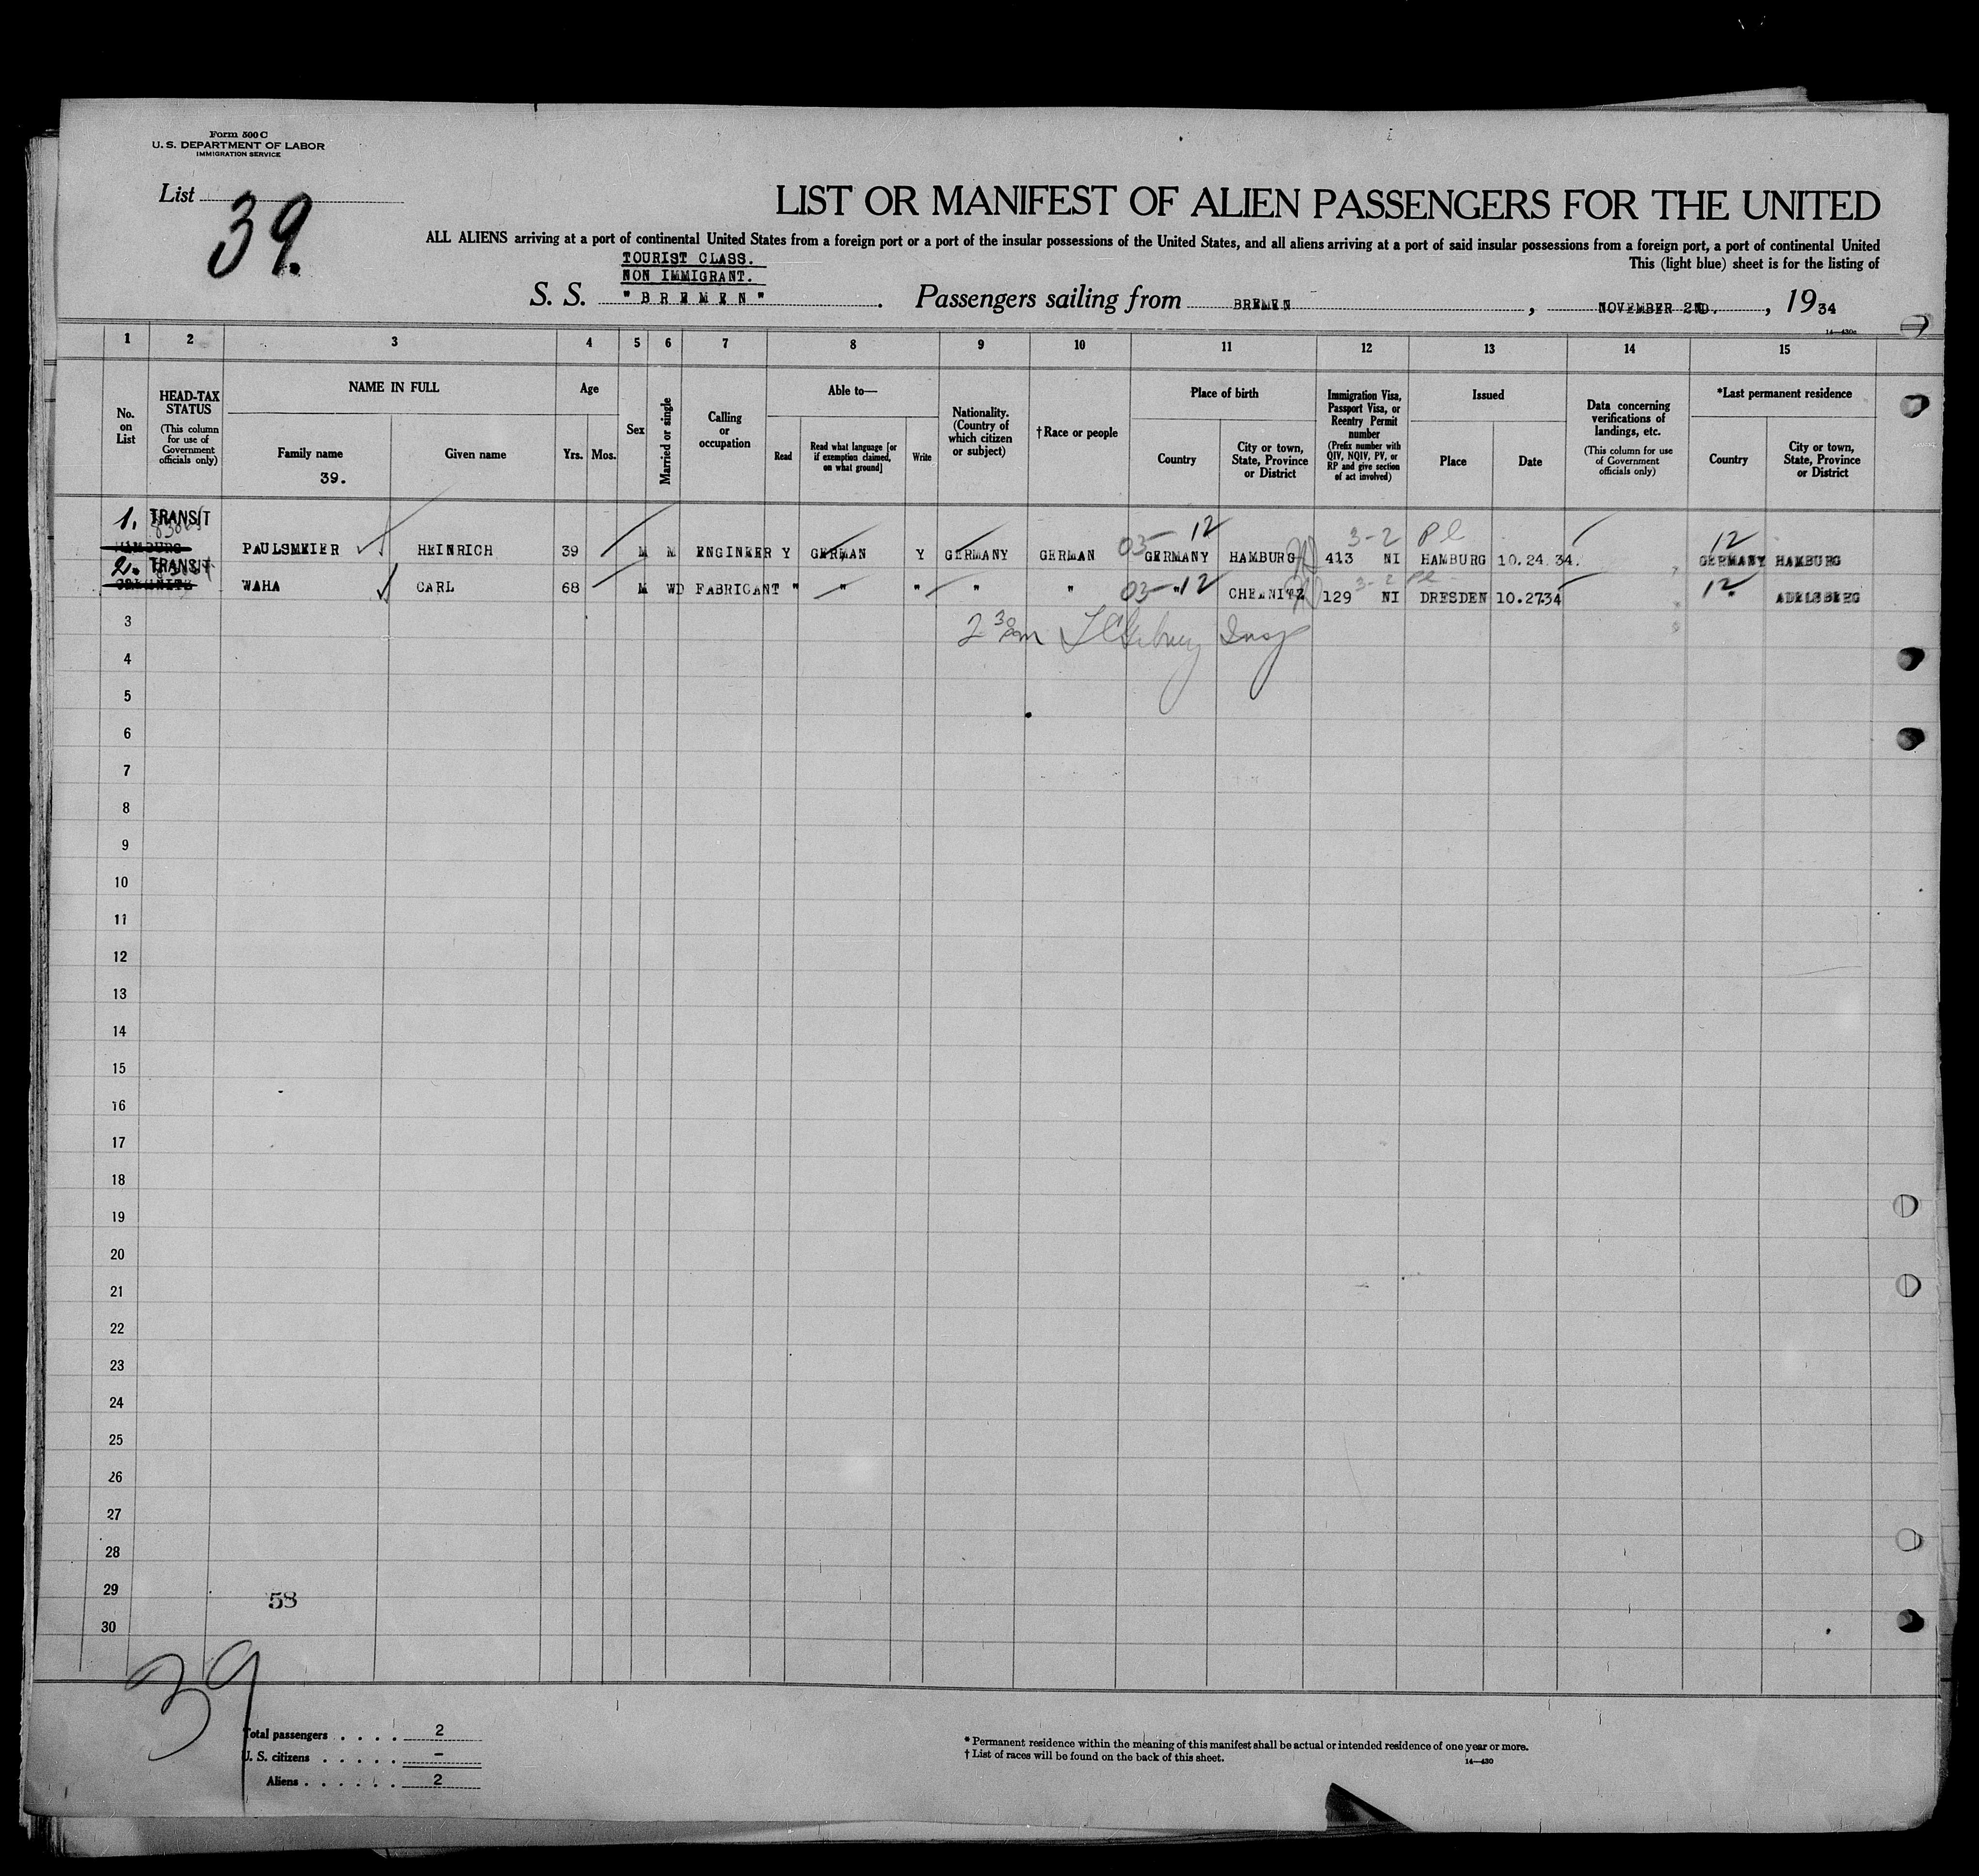 Form 500 C
U. S. DEPARTMENT OF LABOR
IMMIGRATION SERVICE
List 39.
LIST OR MANIFEST OF ALIEN PASSENGERS FOR THE UNITED
ALL ALIENS arriving at a port of continental United States from a foreign port or a port of the insular possessions of the United States, and all aliens arriving at a port of said insular possessions from a foreign port, a port of continental United
This (light blue) sheet is for the listing of
TOURIST CLASS.
NON IMMIGRANT.
S. S. "BREMEN". Passengers sailing from BREMEN, NOVEMBER 2ND., 1934
14—430c
1 2 3 4 5 6 7 8 9 10 11 12 13 14 15
No. on List
HEAD-TAX STATUS
(This column for use of Government officials only)
NAME IN FULL
Family name
39.
Given name
Age
Yrs. Mos.
Sex
Married or single
Calling or occupation
Able to—
Read
Read what language [or if exemption claimed, on what ground]
Write
Nationality. (Country of which citizen or subject)
†Race or people
Place of birth
Country
City or town, State, Province or District
Immigration Visa, Passport Visa, or Reentry Permit number
(Prefix number with QIV, NQIV, PV, or RP and give section of act involved)
Issued
Place
Date
Data concerning verifications of landings, etc.
(This column for use of Government officials only)
*Last permanent residence
Country
City or town, State, Province or District
03- 12 3-2 Pl 12
1. TRANSIT PAULSMEIER HEINRICH 39 M M ENGINEER Y GERMAN Y GERMANY GERMAN GERMANY HAMBURG 413 NI HAMBURG 10.24.34. GERMANY HAMBURG
03- 12 3-2 Pl 12
2. TRANSIT WAHA CARL 68 M WD FABRICANT " " " " " " CHEMNITZ 129 NI DRESDEN 10.27.34 " ADELSBERG
3 2 30 pm Insp
4
5
6
7
8
9
10
11
12
13
14
15
16
17
18
19
20
21
22
23
24
25
26
27
28
29 58
30
39
Total passengers . . . . 2
U. S. citizens . . . . . –
Aliens . . . . . . 2
* Permanent residence within the meaning of this manifest shall be actual or intended residence of one year or more.
† List of races will be found on the back of this sheet.
14—430